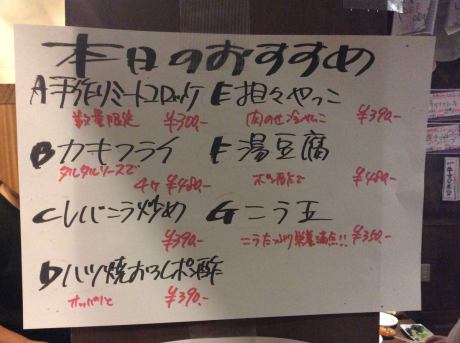 本日のおすすめ
A手作りミートコロッケ
数量限定 ¥300,-
Bカキフライ
タルタルソースで
4ヶ ¥480,-
Cレバニラ炒め
¥390,-
Dハツ焼おろしポン酢
サッパリと ¥390,-
E担々やっこ
肉のせ冷やっこ ¥390,-
F湯豆腐
ポン酢で ¥480,-
Gニラ玉
ニラたっぷり栄養満点!! ¥350,-